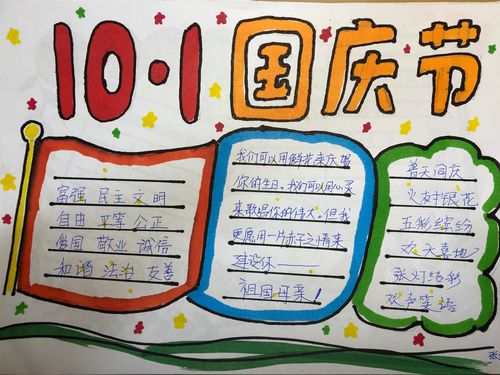 10·1国庆节
富强 民主 文明
自由 平等 公正
爱国 敬业 诚信
和谐 法治 友善
我们可以用鲜花来庆祝
你的生日。我们可以用心灵
来歌唱你的伟大。但我
更愿用一片赤子之情来
建设你——
祖国母亲！
普天同庆
火树银花
五彩缤纷
欢天喜地
张灯结彩
欢声笑语
张